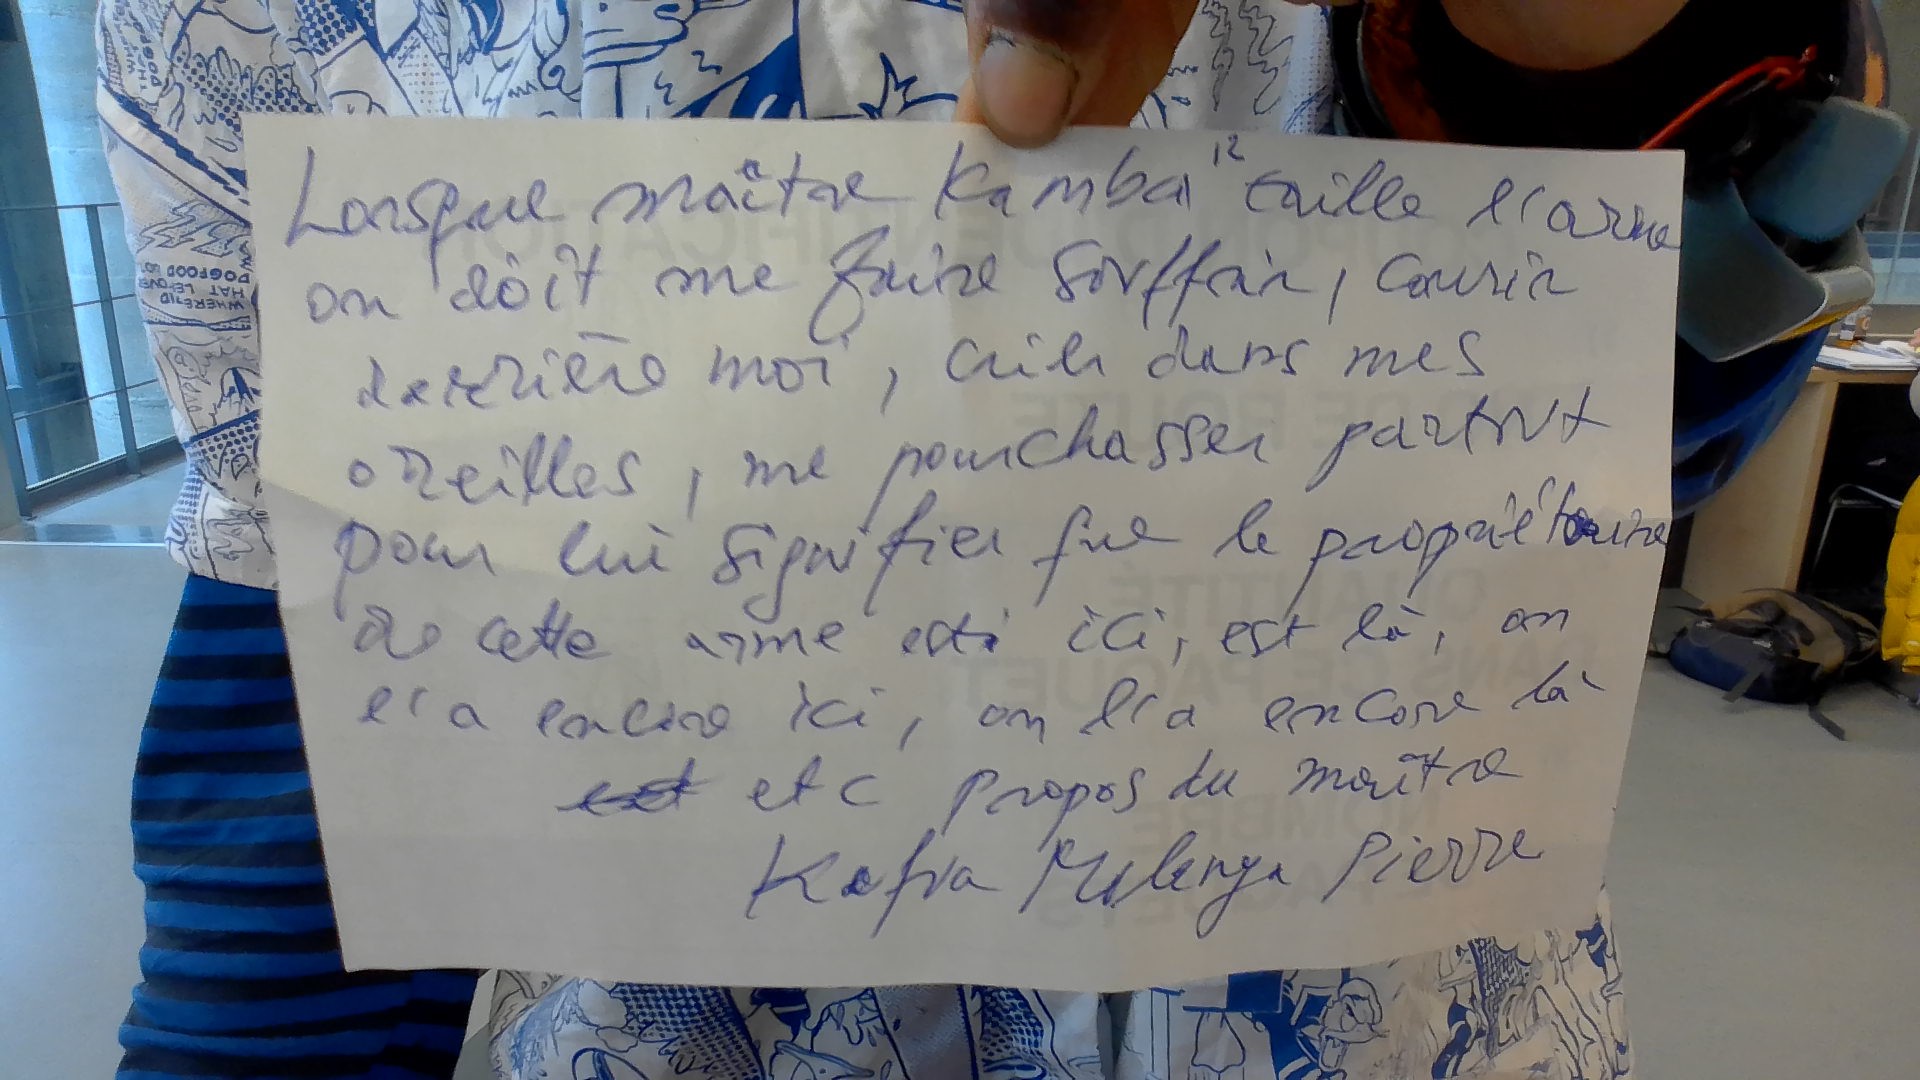 Lorsque maître Kamba 12 taille l'arme
on doit me faire souffrir, courir
derrière moi, crier dans mes
oreilles, me pourchasser partout
pour lui signifier que le propriétaire
de cette arme est ici, est là, on
l'a encore ici, on l'a encore là
etc propos du maître
Kafra Mulenga Pierre
DOGFOOD
QUANTITÉ
NOMBRE